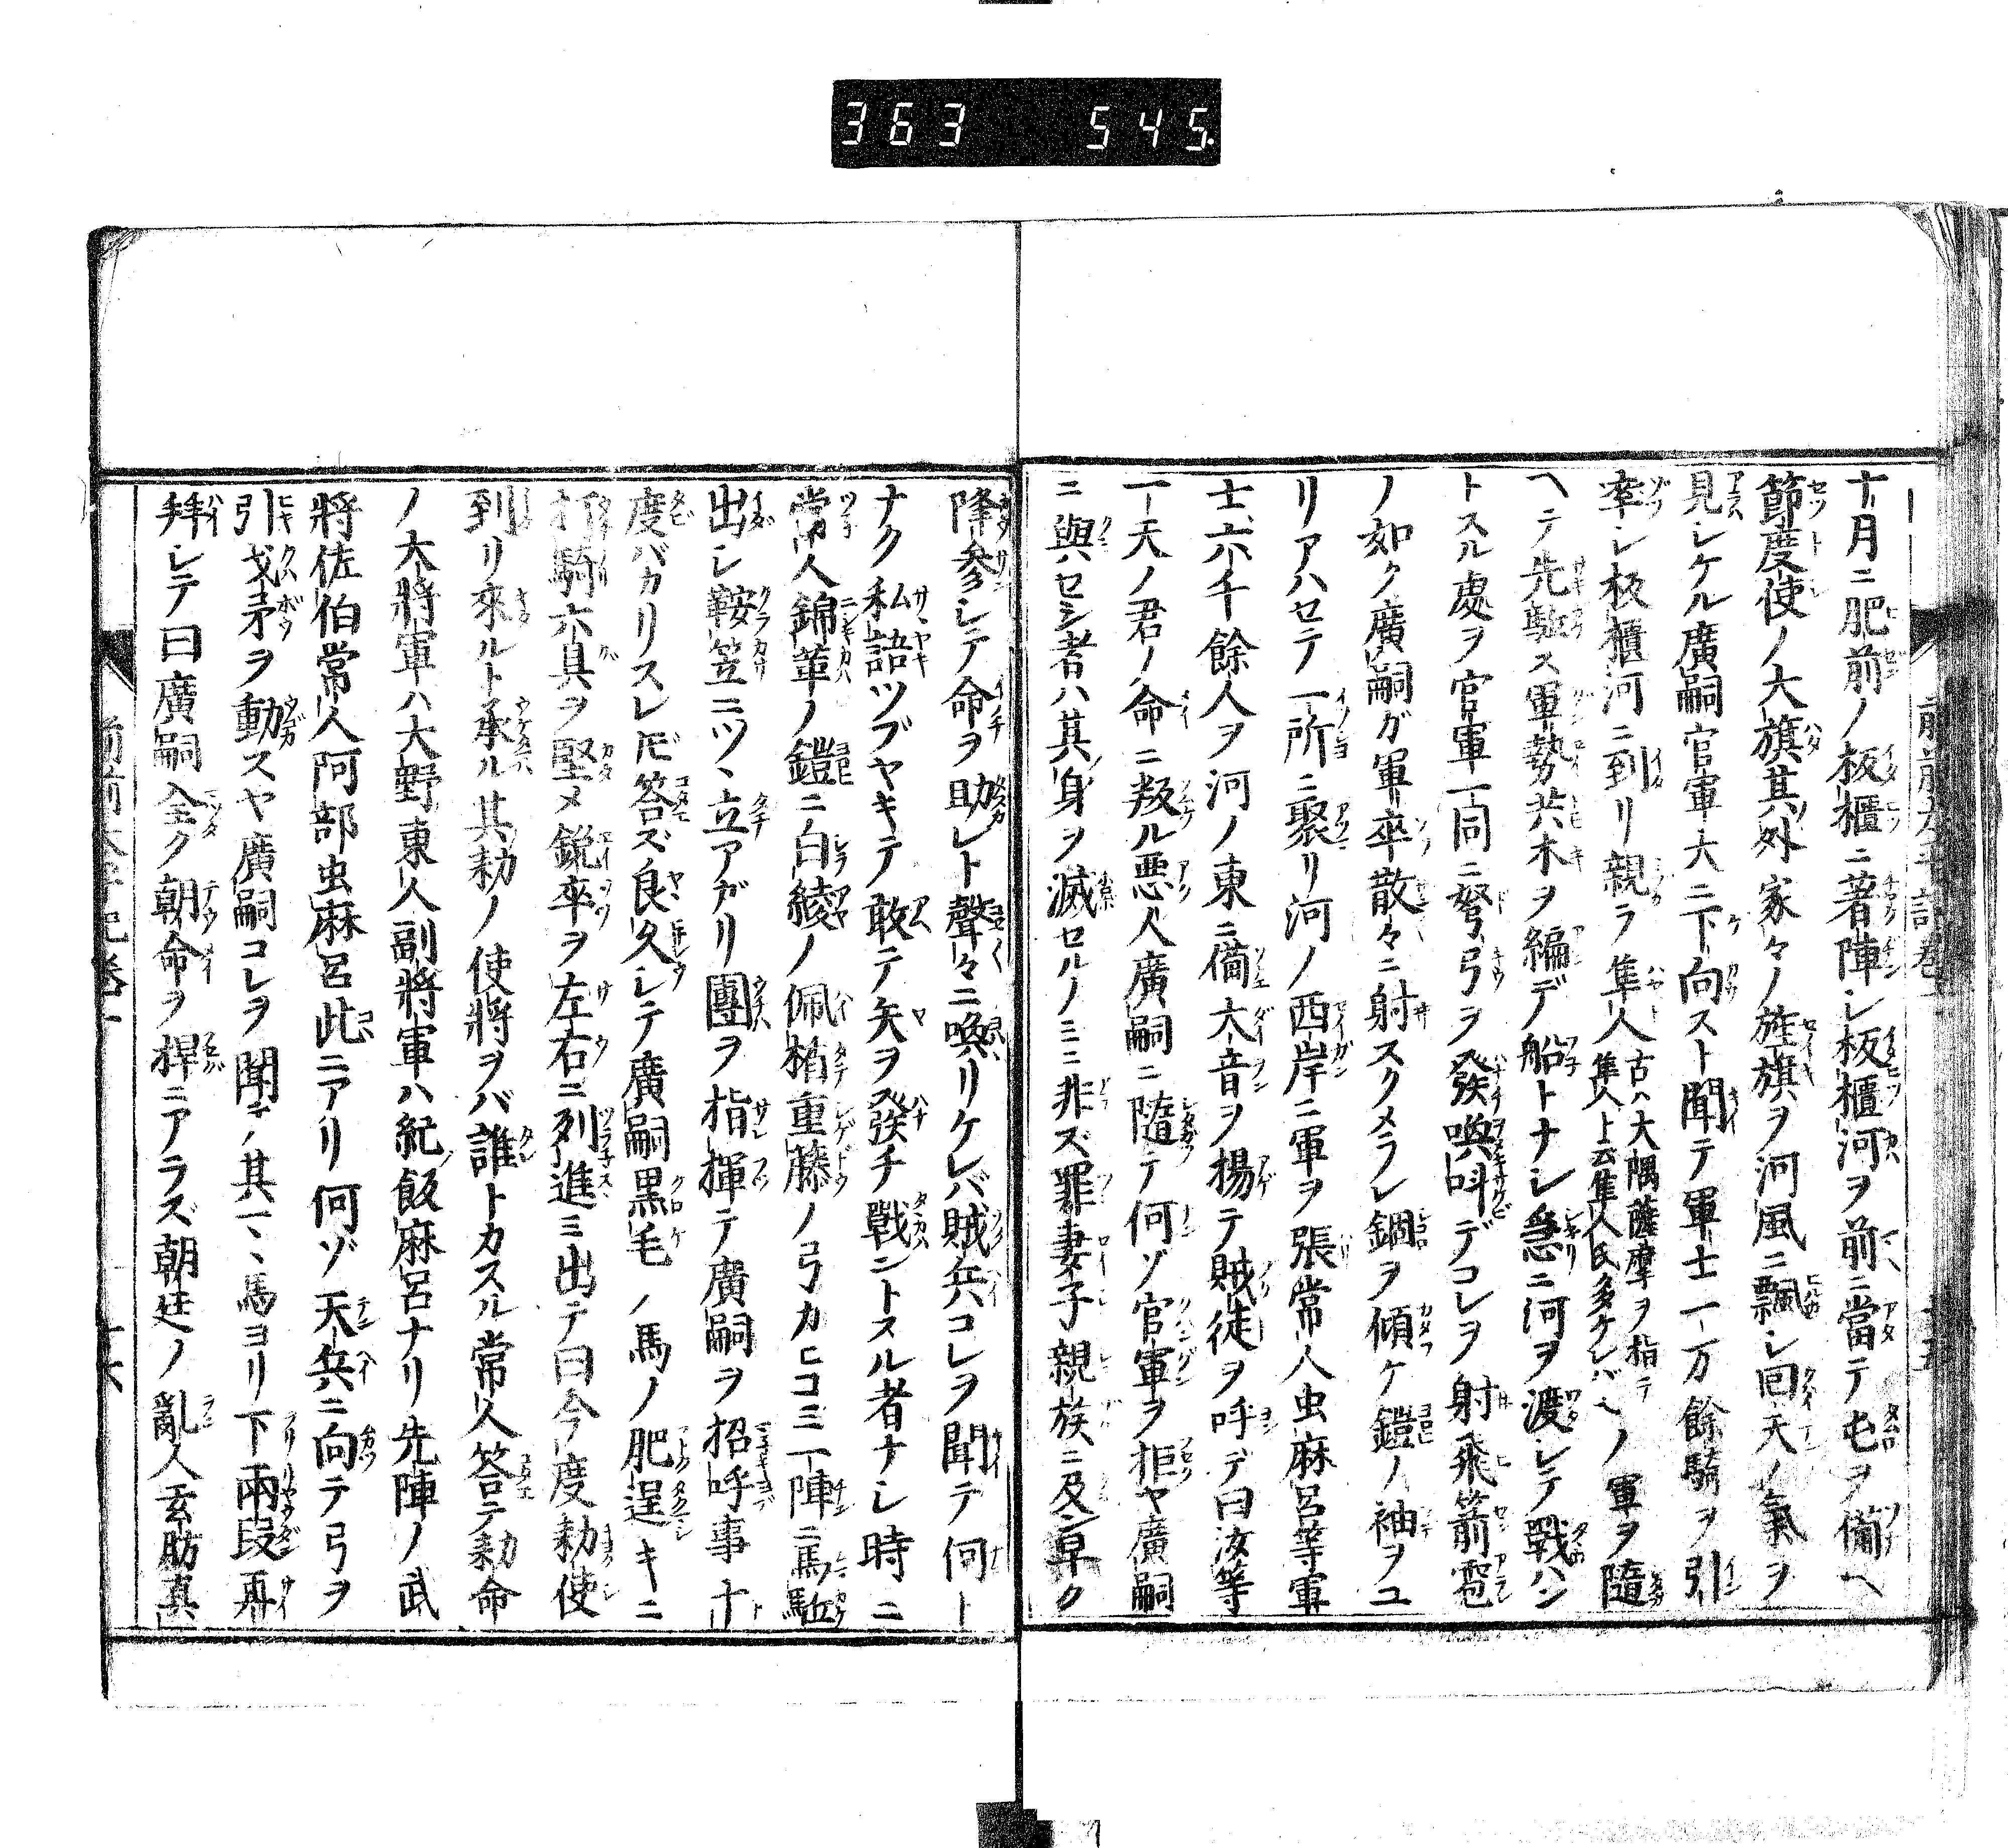 363 545.
十月ニ肥前ノ板櫃ニ著陣シ板櫃河ヲ前ニ當テ屯ヲ備ヘ
節度使ノ大旗其外家々ノ旌旗ヲ河風ニ飄シ回天ノ氣ヲ
見シケル廣嗣官軍大ニ下向スト聞テ軍士一万餘騎ヲ引
率シ板櫃河ニ到リ親ラ隼人古ハ大隅薩摩ヲ指テ隼人ト云隼人氏多ケレバ也ノ軍ヲ隨
ヘテ先駈ス軍勢共木ヲ編デ船トナシ急ニ河ヲ渡シテ戰ハン
トスル處ヲ官軍一同ニ弩弓ヲ發喚叫デコレヲ射飛箭雹
ノ如ク廣嗣ガ軍卒散々ニ射スクメラレ錣ヲ傾ケ鎧ノ袖ヲユ
リアハセテ一所ニ聚リ河ノ西岸ニ軍ヲ張常人虫麻呂等軍
士六千餘人ヲ河ノ東ニ備大音ヲ揚テ賊徒ヲ呼デ曰汝等
一天ノ君ノ命ニ叛ル悪人廣嗣ニ隨テ何ゾ官軍ヲ拒ヤ廣嗣
ニ與セシ者ハ其身ヲ滅セルノミニ非ズ罪妻子親族ニ及ン早ク
降参シテ命ヲ助レト聲々ニ喚リケレバ賊兵コレヲ聞テ何ト
ナク私語ツブヤキテ敢テ矢ヲ發チ戰ントスル者ナシ時ニ
常人錦革ノ鎧ニ白綾ノ佩楯重藤ノ弓カヒコミ一陣ニ馬駈
出シ鞍笠ニツヽ立アガリ團ヲ指揮テ廣嗣ヲ招呼事十
度バカリスレ𪜈答ズ良久シテ廣嗣黒毛ノ馬ノ肥逞キニ
打騎六具ヲ堅メ鋭卒ヲ左右ニ列進ミ出テ曰今度勅使
到リ來ルト承ル其勅ノ使將ヲバ誰トカスル常人答テ勅命
ノ大將軍ハ大野東人副將軍ハ紀飯麻呂ナリ先陣ノ武
將佐伯常人阿部虫麻呂此ニアリ何ゾ天兵ニ向テ弓ヲ
引戈矛ヲ動スヤ廣嗣コレヲ聞テ其一馬ヨリ下兩段再
拜シテ曰廣嗣全ク朝命ヲ捍ニアラズ朝廷ノ亂人玄昉真